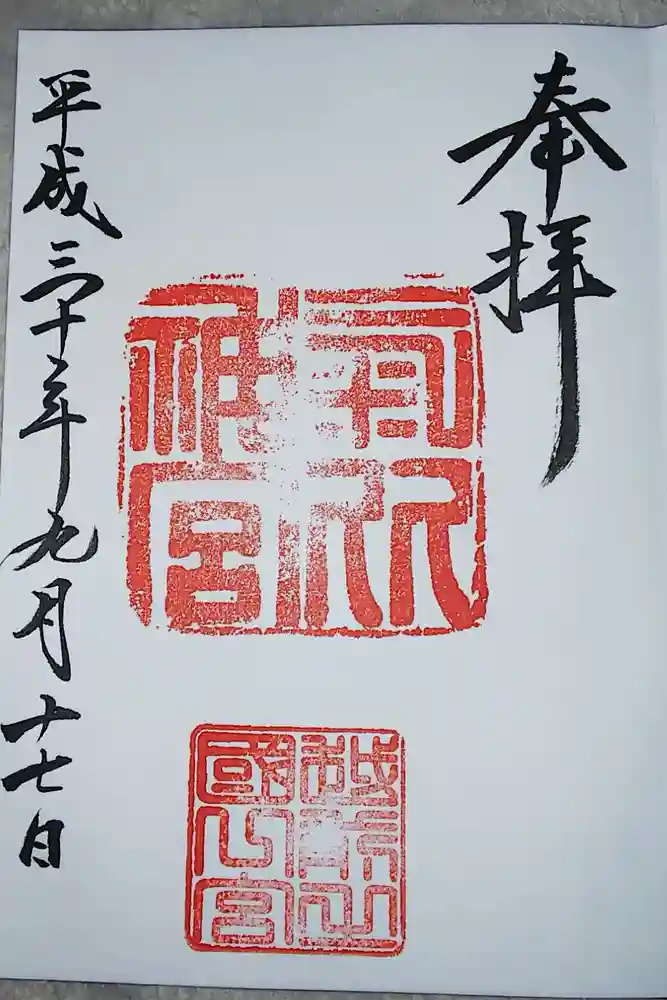 奉拝
氣比
神宮
越前之
國一宮
平成三十年九月十七日